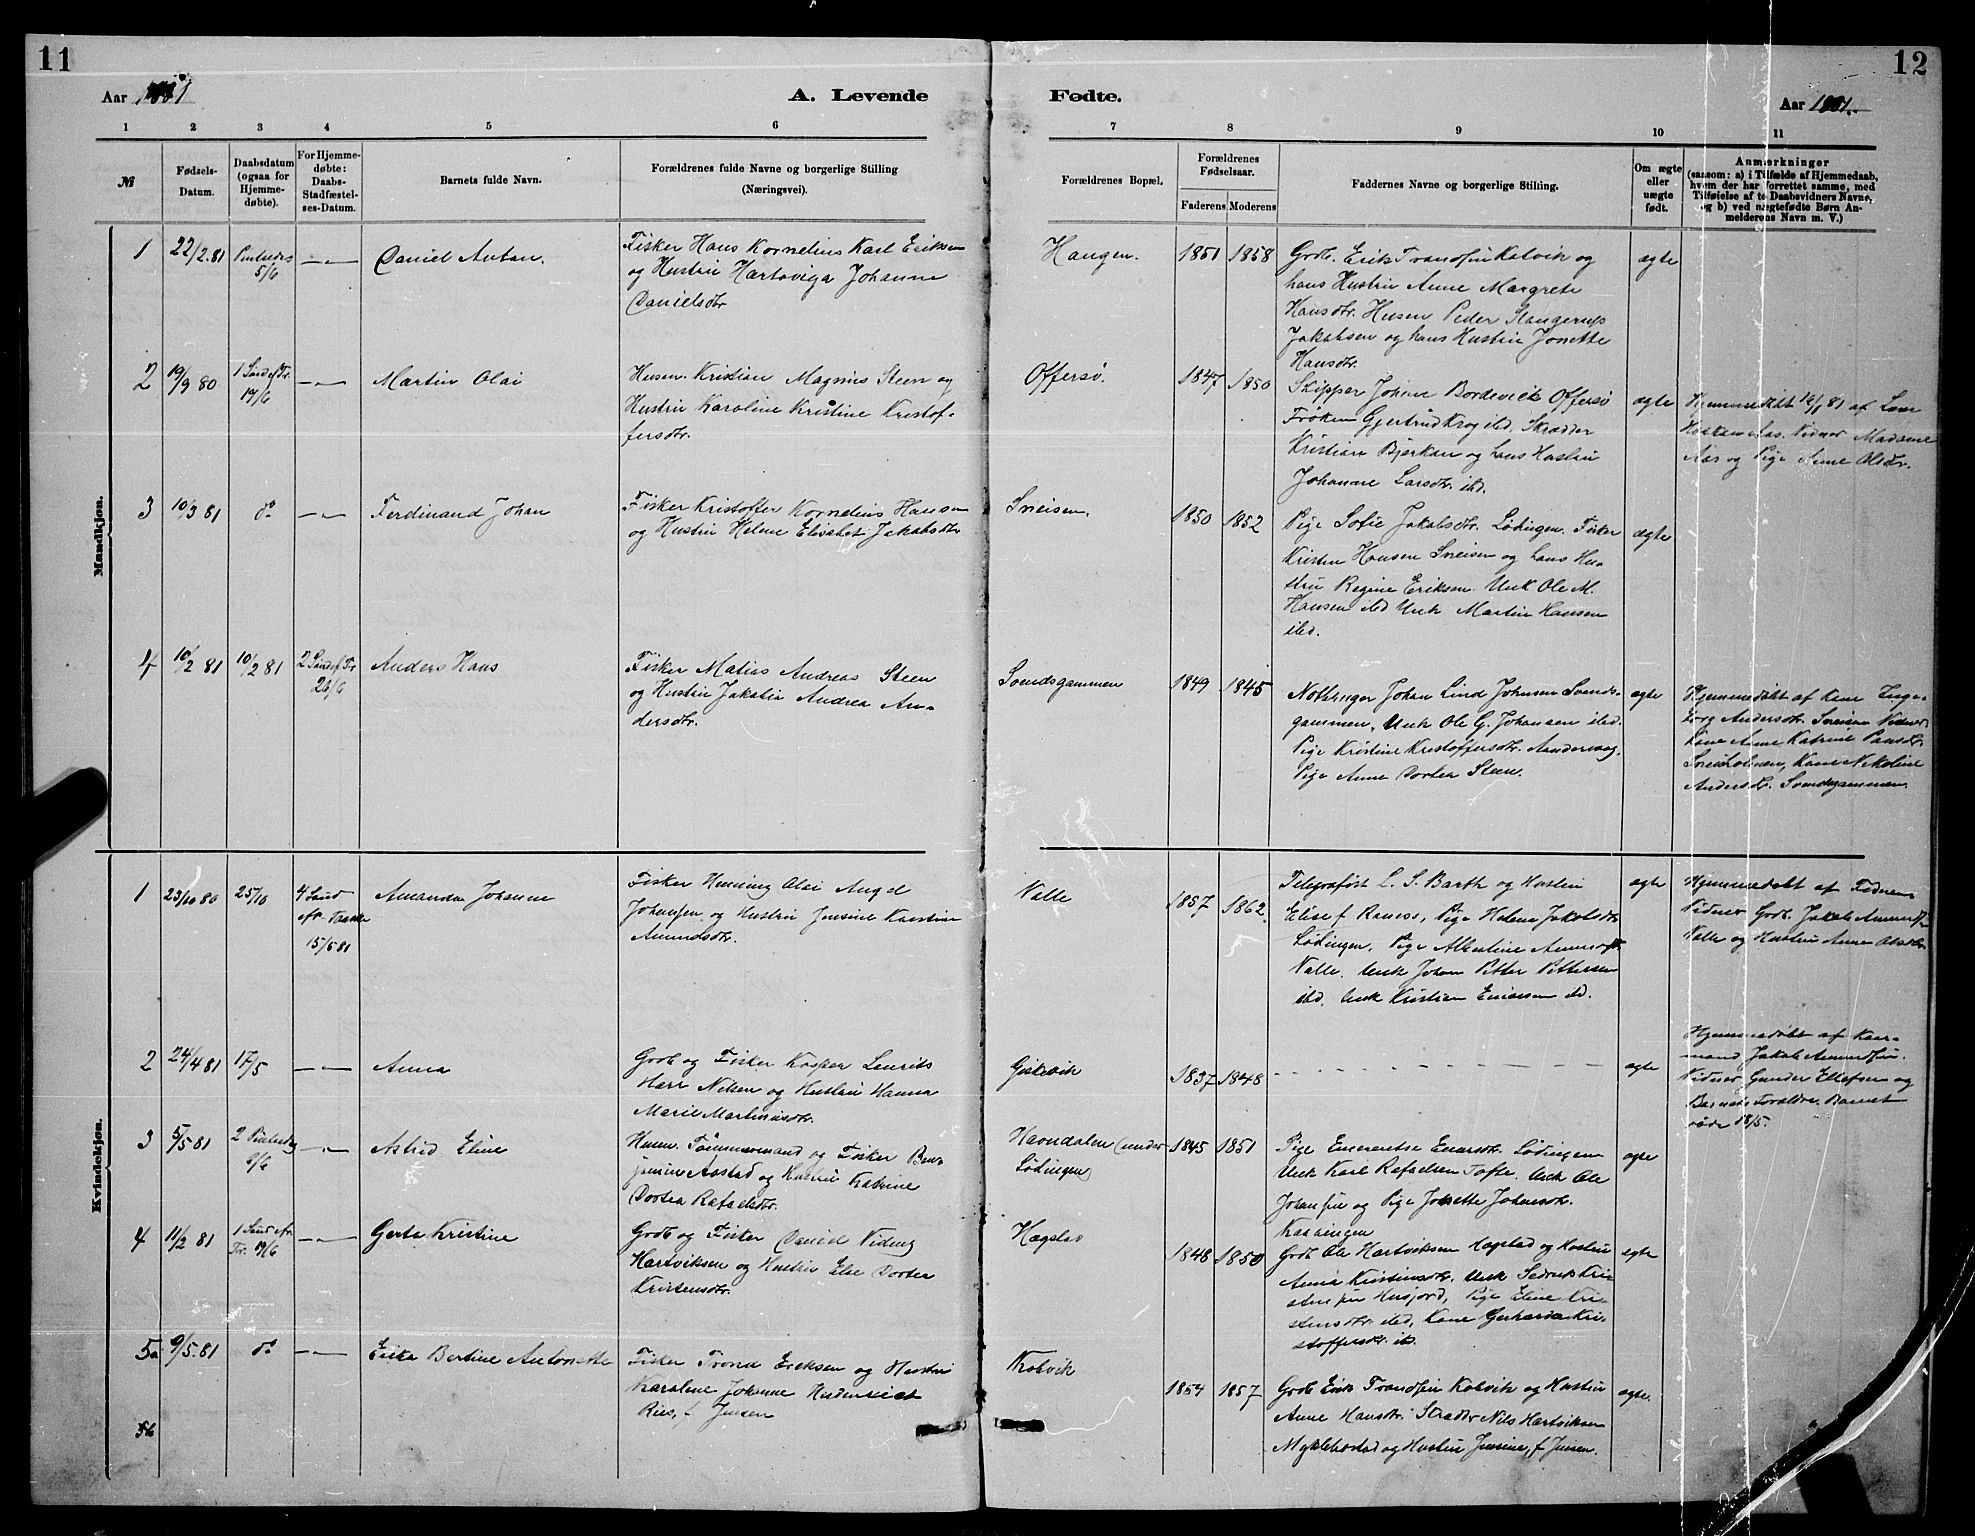 11
12
Aar 1881
A. Levende
Fødte.
Aar 1881.
1 2 3 4 5 6
7 8 9 10 11
№
Fødsels-Datum.
Daabsdatum (ogsaa for Hjemme-døbte).
For Hjemme-døbte: Daabs-Stadfæstel-ses-Datum.
Barnets fulde Navn.
Forældrenes fulde Navne og borgerlige Stilling
(Næringsvei).
Forældrenes Bopæl.
Forældrenes Fødselsaar.
Faderens Moderens
Faddernes Navne og borgerlige Stilling.
Om ægte eller uægte født.
Anmerkninger
(saasom: a) i Tilfælde af Hjemmedaab,
hvem der har forrettet samme, med
Tilføielse af to Daabsvidners Navne,
og b) ved uægtefødte Børn An-
melderens Navn m. V.)
Mandkjøn.
1 22/2 81 5/6 Daniel Anton.
Fisker Hans Kornelius Karl Eriksen
og Hustru Hartoviga Johanne
Danielsdtr
Haugen. 1851 1858
Grdb. Erik Trondsen Kolvik og
hans Hustru Anne Margrete
Hansdtr. Husm Peder Slangerup
Jakobsen og hans Hustru Jonette
Hansdtr.
ægte
2 19/9 80 1 Sønd ef Tr. 19/6 Martin Olai
Husm. Kristian Magnus Steen og
Hustru Karoline Kristine Kristof-
fersdtr.
Offersø. 1847 1850
Skipper Johan Bordevick Offersø
Frøken Gjertrud Krog ibd, Skrædder
Kristian Bjerkan og hans Hustru
Johanne Larsdtr. ibd.
ægte
Hjemmedøbt af
Aas og Pige Anne Olsdtr.
3 10/3 81 do Ferdinand Johan
Fisker Kristoffer Kornelius Hansen
og Hustru Helene Elisabet Jakobsdtr
Sneisen. 1850 1852
Pige Sofie Jakobsdtr. Lødingen. Fisker
Kristen Hansen Sneisen og hans Hu-
stru Regine Eriksen. Unk Ole M.
Hansen ibd Unk Martin Hansen
ibd.
ægte
4 10/2 81 10/2 81 2 Sønd ef Tr 26/6 Anders Hans
Fisker Matias Andreas Steen
og Hustru Jakobia Andrea An-
dersdtr.
Svendsgammen 1849 1845
Johan Lind Johnsen Svends-
gammen, Unk Ole G. Johansen ibd.
Pige Kristine Kristoffersdtr.
Pige Anne Dortea Steen.
ægte
Hjemmedøbt af Kone Inge-
borg Andersdtr. Sneisen Vidner
Kone Anne Katrine
Sneisholmen, Kone Nikoline
Andersdtr. Svendsgammen.
Kvindekjøn.
1 23/10 80 25/10 4 Sønd eft. Paaske 15/5 81 Amanda Johanne
Fisker Henning Olai Angel
Johansen og Hustru Jensine Karstine
Amundsdtr.
Valle 1857 1862
Telegrafist L. S. Barth og Hustru
Elise f. Pige Helene Jakobsdtr
Lødingen, Pige Albertine
Valle. Unk Johan Petter Pettersen
ibd. Unk Kristian Einersen ibd.
ægte
Hjemmedøbt af
Vidner Grdb. Jakob Amundsen
Valle og Hustru Anne Olsdtr
2 24/4 81 17/5 Anna
Grdb og Fisker Kasper Laurits
Harr Nilsen og Hustru Hanna
Marie Martinusdtr.
Giskevik 1837 1848
ægte
Hjemmedøbt af
Jakob Amundsen.
Vidner Gunder Ellefsen og
Barnets Forældre. Barnet
døde 18/5.
3 5/5 81 6/6 Astrid Eline
Husm. Tømmermand og Fisker Ben-
jamin Aastad og Hustru Katrine
Dortea Rafaelsdtr.
Havndalen (under
Lødingen) 1845 1851
Pige Emerentse Einersdtr. Lødingen
Unk Karl Rafaelsen Tofte. Unk Ole
Johansen og Pige Jonette Johansdtr.
ægte
4 11/2 81 1 Sønd eft. Tr. 19/6 Gerta Kristine
Grdb og Fisker Daniel Viding
Hartviksen og Hustru Else Dortea
Kristensdtr.
Hægstad 1848 1850
Grdb Ole Hartviksen Hægstad og Hustru
Anna Kristensdtr. Unk Sedrik Kri-
stensen Husjord, Pige Eline Kri-
stensdtr. ibd, Kone Gerharda Kri-
stoffersdtr. ib
ægte
5a 9/5 81 do Erika Bertine Antonette
Fisker Trond Eriksen og Hustru
Karoline Johanne
f. Jensen
Kolvik 1854 1857
Grdb Erik Trondsen Kolvik og Hustru
Anne Hansdtr. Skrædder Nils Hartviksen
Myklebostad og Hustru Jensine, f Jensen.
ægte.
5b